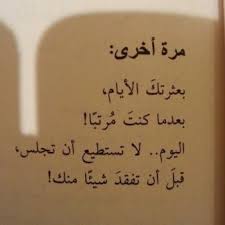 مرة أخرى:
بعثرتكَ الأيام،
بعدما كنتَ مُرتبًا!
اليوم.. لا تستطيع أن تجلس،
قبلَ أن تفقدَ شيئًا منك!